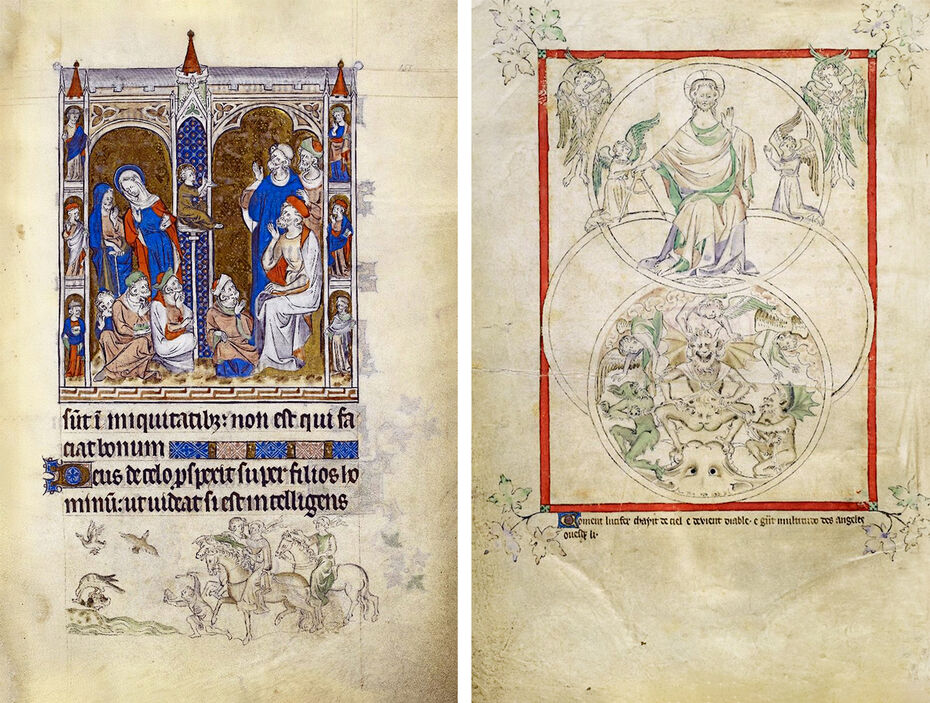 sūt ī iniquitatibꝫ: non est qui fa
ciat bonum
Deus de celo ꝓspexit super filios ho
minū: ut videat si est intelligens
Coment lucifer chayit de ciel e devient diable · e grāt multitudo des angeles
ovesqꝫ li ·